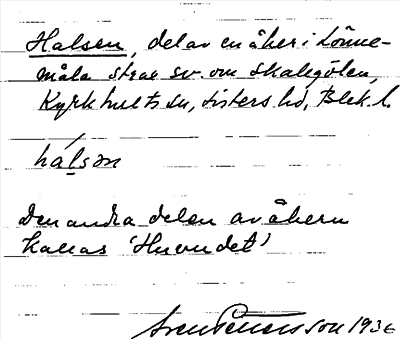 Halsen, del av en åker i Lönne-
måla strax sv. om Skalegölen,
Kyrkhults sn, Listers hd, Blek. l.
hálsən
Den andra delen av åkern
kallas 'Huvudet'
1936